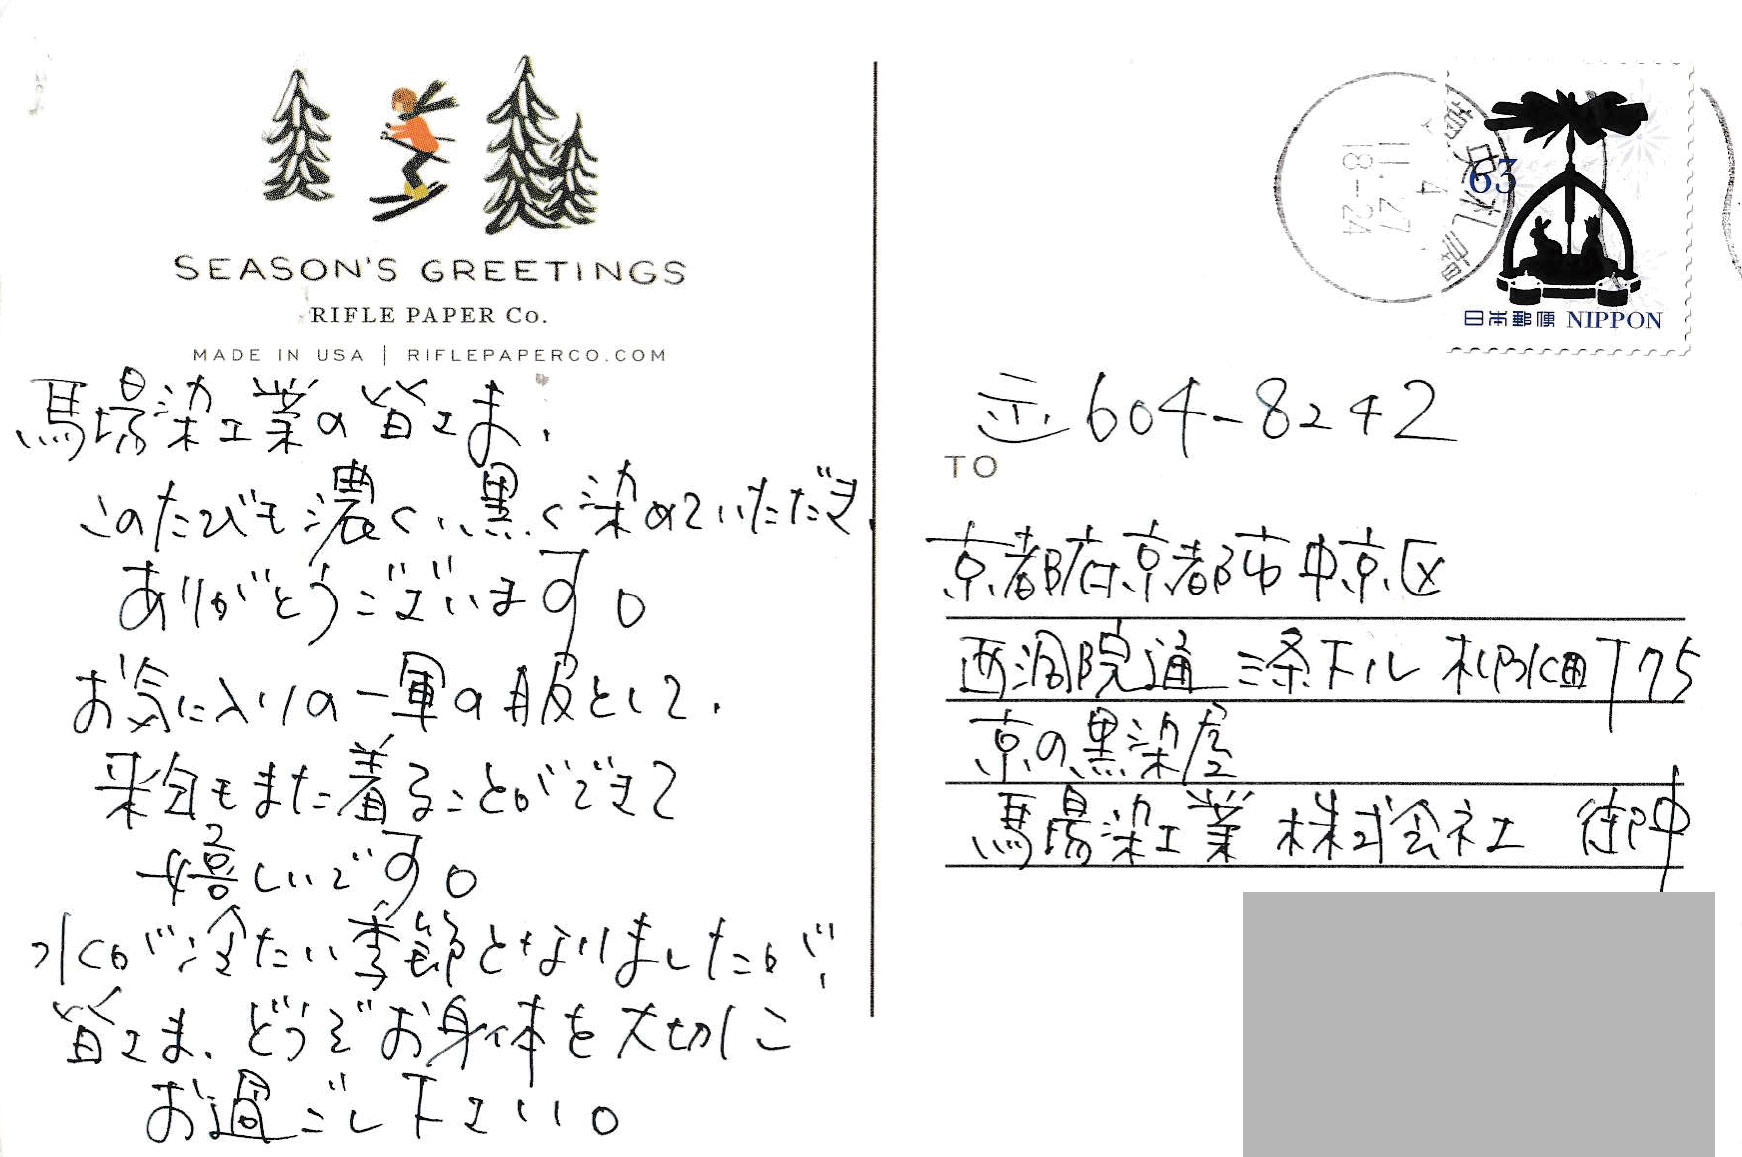 SEASON'S GREETINGS
RIFLE PAPER Co.
MADE IN USA | RIFLEPAPERCO.COM
馬場染工業の皆さま、
このたびも濃く、黒く染めていただき
ありがとうございます。
お気に入りの一軍の服として、
来年もまた着ることができて
嬉しいです。
水が冷たい季節となりましたが、
皆さま、どうぞお身体を大切に
お過ごし下さい。
63
日本郵便 NIPPON
中央札幌
4
11.27
18-24
〒604-8242
TO
京都府京都市中京区
西洞院通 三条下ル 柳水町75
京の黒染屋
馬場染工業 株式会社 御中